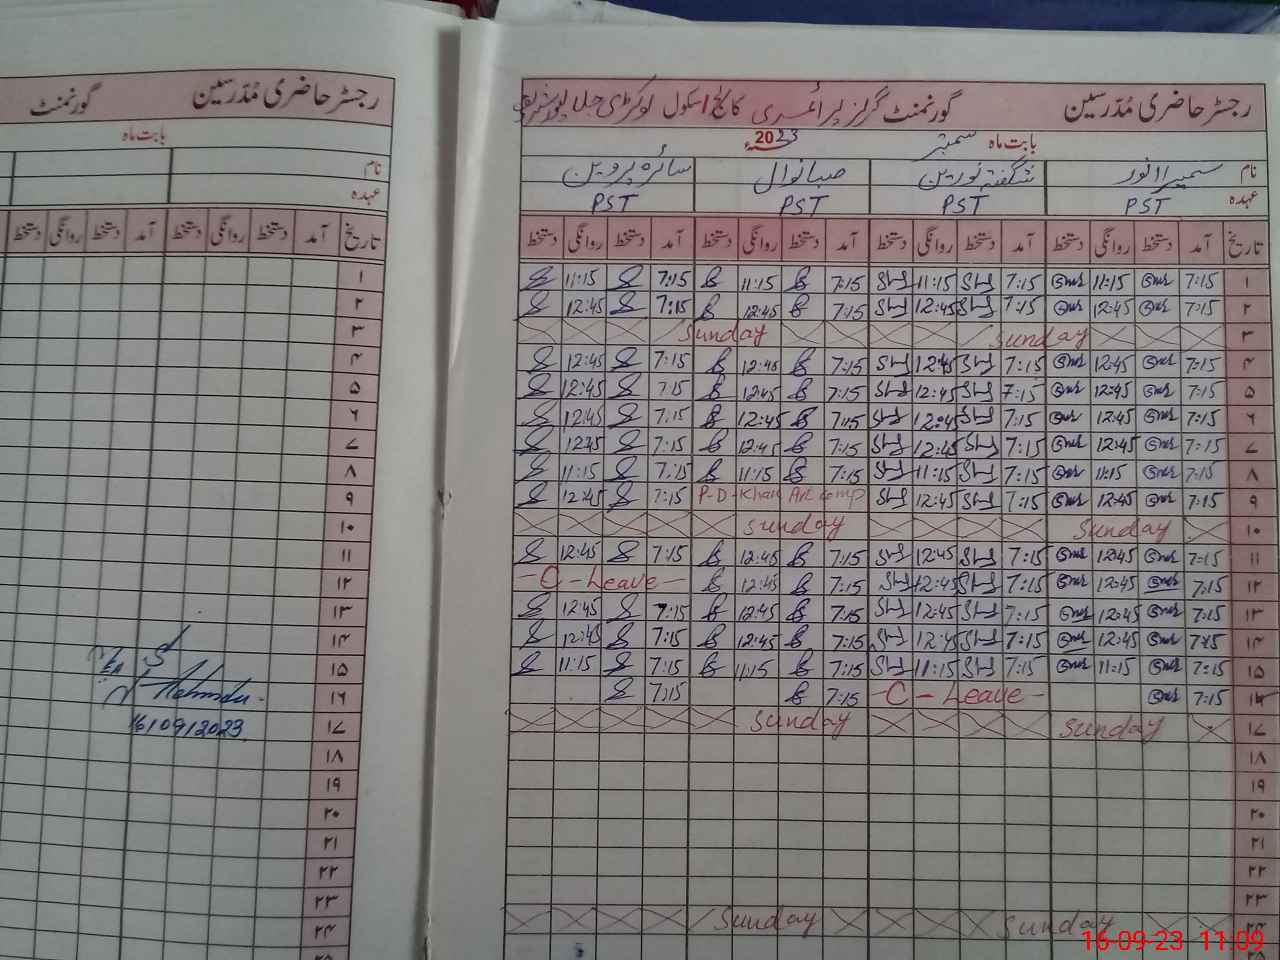 رجسٹر حاضری مُدّرسین گورنمنٹ گرلز پرائمری سکول
بابت ماہ ستمبر 2023
نام سمیرا انور شگفتہ نورین صبا نوال سائرہ پروین
عہدہ PST PST PST PST
تاریخ آمد دستخط روانگی دستخط آمد دستخط روانگی دستخط آمد دستخط روانگی دستخط آمد دستخط روانگی دستخط
۱ 7:15 11:15 7:15 11:15 7:15 11:15 7:15 11:15
۲ 7:15 12:45 7:15 12:45 7:15 12:45 7:15 12:45
۳ Sunday Sunday
۴ 7:15 12:45 7:15 12:45 7:15 12:45 7:15 12:45
۵ 7:15 12:45 7:15 12:45 7:15 12:45 7:15 12:45
۶ 7:15 12:45 7:15 12:45 7:15 12:45 7:15 12:45
۷ 7:15 12:45 7:15 12:45 7:15 12:45 7:15 12:45
۸ 7:15 11:15 7:15 11:15 7:15 11:15 7:15 11:15
۹ 7:15 12:45 7:15 12:45 P-D Khan 7:15 12:45
۱۰ Sunday Sunday
۱۱ 7:15 12:45 7:15 12:45 7:15 12:45 7:15 12:45
۱۲ 7:15 12:45 7:15 12:45 7:15 12:45 -C-Leave-
۱۳ 7:15 12:45 7:15 12:45 7:15 12:45 7:15 12:45
۱۴ 7:15 12:45 7:15 12:45 7:15 12:45 7:15 12:45
۱۵ 7:15 11:15 7:15 11:15 7:15 11:15 7:15 11:15
7:15 -C-Leave- 7:15 7:15
۱۷ Sunday Sunday
۱۸
۱۹
۲۰
۲۱
۲۲
۲۳
۲۴ Sunday Sunday
16-09-23 11:09
رجسٹر حاضری مُدّرسین گورنمنٹ
بابت ماہ
نام
عہدہ
تاریخ آمد دستخط روانگی دستخط آمد دستخط روانگی دستخط
۱
۲
۳
۴
۵
۶
۷
۸
۹
۱۰
۱۱
۱۲
۱۳
۱۴
۱۵
۱۶
۱۷ 16/09/2023
۱۸
۱۹
۲۰
۲۱
۲۲
۲۳
۲۴